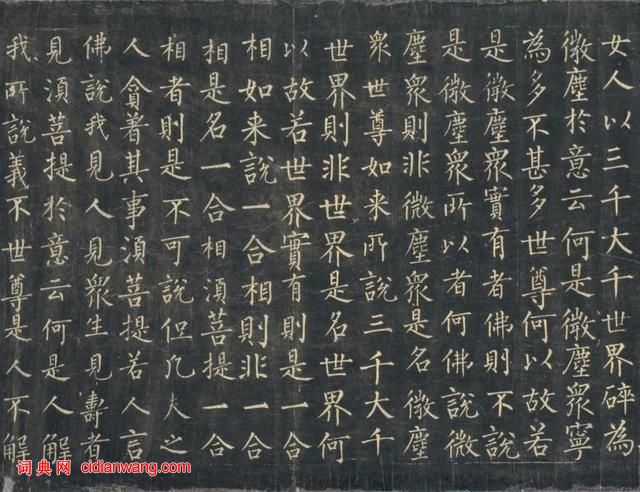 女人以三千大千世界碎為
微塵於意云何是微塵眾寧
為多不甚多世尊何以故若
是微塵眾實有者佛則不說
是微塵眾所以者何佛說微
塵眾則非微塵眾是名微塵
眾世尊如来所說三千大千
世界則非世界是名世界何
以故若世界實有則是一合
相如来說一合相則非一合
相是名一合相須菩提一合
相者則是不可說但凡夫之
人貪著其事須菩提若人言
佛說我見人見眾生見壽者
見須菩提於意云何是人解
我所說義不世尊是人不解
词典网 cidianwang.com